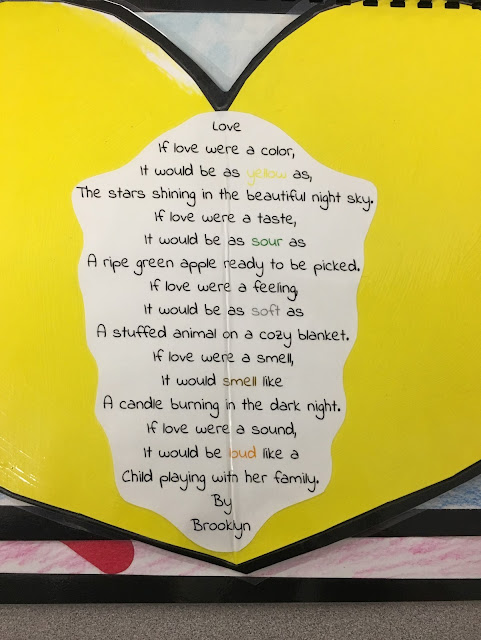 Love
If love were a color,
It would be as yellow as,
The stars shining in the beautiful night sky.
If love were a taste,
It would be as sour as
A ripe green apple ready to be picked.
If love were a feeling,
It would be as soft as
A stuffed animal on a cozy blanket.
If love were a smell,
It would smell like
A candle burning in the dark night.
If love were a sound,
It would be loud like a
Child playing with her family.
By
Brooklyn